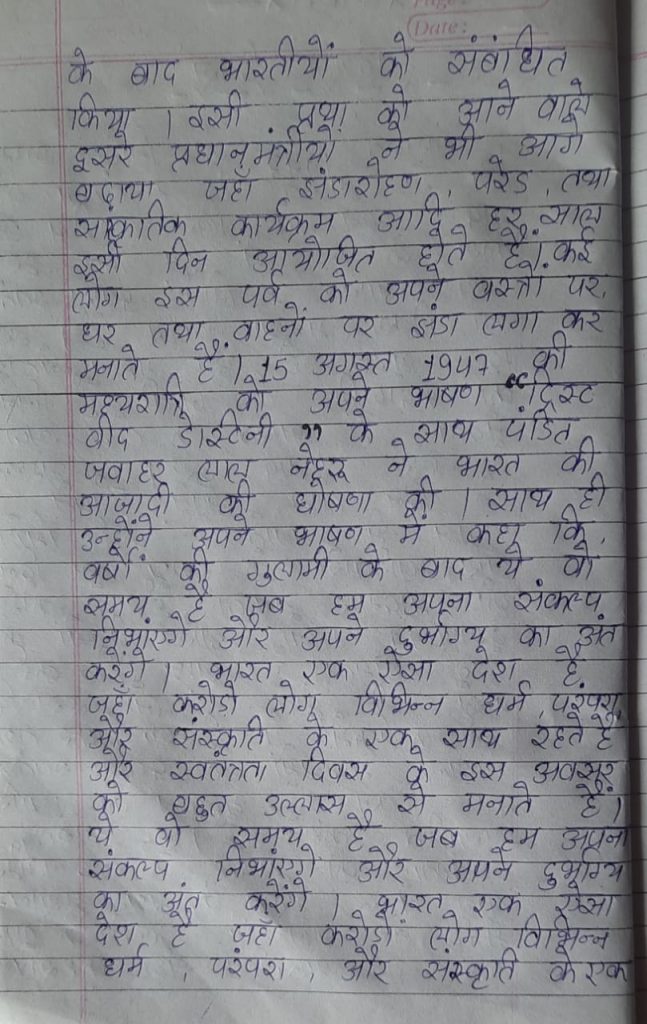 Page:
Date:
के बाद भारतीयों को संबोधित
किया। इसी प्रथा को आने वाले
दुसरे प्रधानुमंत्रीयों ने भी आगे
बढ़ाया जहां झंडारोहण, परेड, तथा
सांकृतिक कार्यक्रम आदि हर साल
इसी दिन आयोजित होते हैं। कई
लोग इस पर्व को अपने वस्त्रों पर,
घर तथा वाहनों पर झंडा लगा कर
मनाते हैं। 15 अगस्त 1947 की
मध्यरात्रि को अपने भाषण “ट्रिस्ट
वीद डेस्टिनी” के साथ पंडित
जवाहर लाल नेहरू ने भारत की
आजादी की घोषणा की। साथ ही
उन्होंने अपने भाषण में कहा कि,
वर्षों की गुलामी के बाद ये वो
समय है जब हम अपना संकल्प
निभाएंगे और अपने दुर्भाग्य का अंत
करेंगे। भारत एक ऐसा देश है
जहाँ करोड़ो लोग विभिन्न धर्म, परंपरा,
और संस्कृति के एक साथ रहते है
और स्वतंत्रता दिवस के इस अवसर
को बहुत उल्लास से मनाते हैं।
ये वो समय है जब हम अपना
संकल्प निभांएगे और अपने दुर्भाग्य
का अंत करेंगे। भारत एक ऐसा
देश है जहाँ करोड़ो लोग विभिन्न
धर्म, परंपरा, और संस्कृति के एक